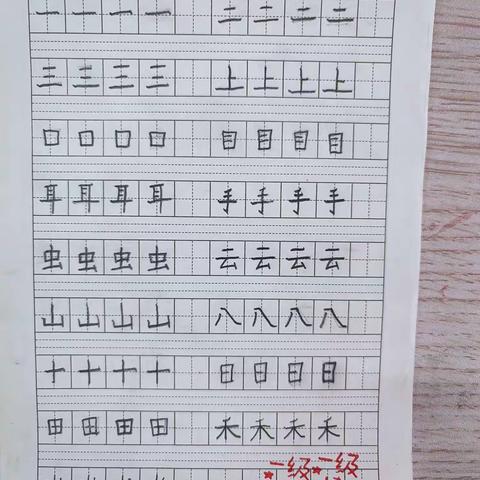 一一一一 二二二二
三三三三 上上上上
口口口口 目目目目
耳耳耳耳 手手手手
虫虫虫虫 云云云云
山山山山 八八八八
十十十十 日日日日
田田田田 禾禾禾禾
一级 一级